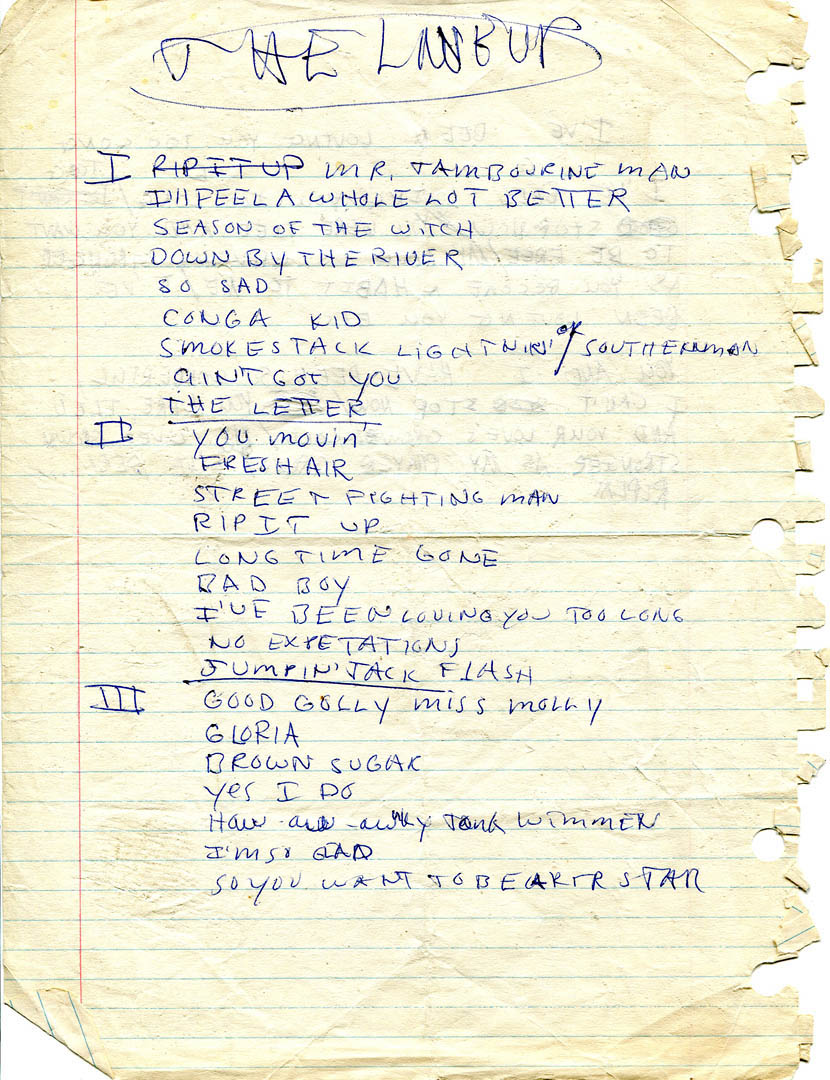 THE LINEUP
I RIP IT UP MR. TAMBOURINE MAN
I'll FEEL A WHOLE LOT BETTER
SEASON OF THE WITCH
DOWN BY THE RIVER
SO SAD
CONGA KID
SMOKESTACK LIGHTNIN' / OR SOUTHERNMAN
AIN'T GOT YOU
THE LETTER
II YOU MOVIN'
FRESH AIR
STREET FIGHTING MAN
RIP IT UP
LONG TIME GONE
BAD BOY
I'VE BEEN LOVING YOU TOO LONG
NO EXPETATIONS
JUMPIN' JACK FLASH
III GOOD GOLLY MISS MOLLY
GLORIA
BROWN SUGAR
YES I DO
TONK WIMMEN
I'M SO GAD
SO YOU WANT TO BE A R R STAR